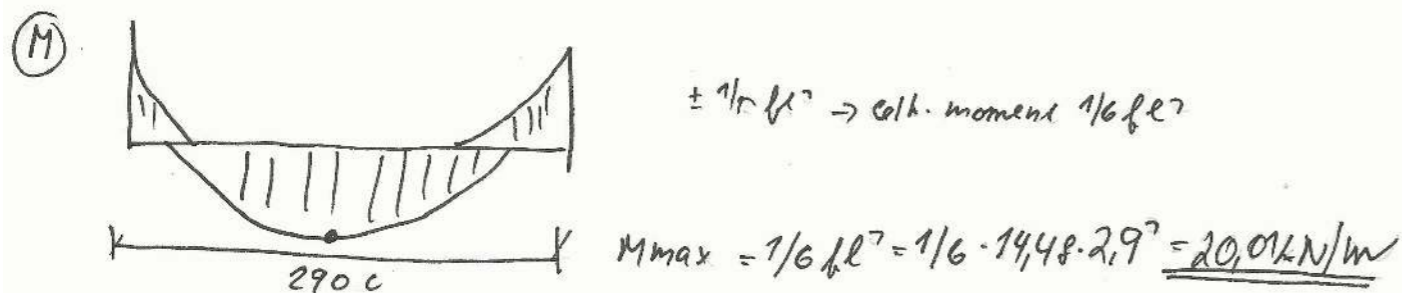 M
± fl² → celk. moment 1/6 fl²
Mmax = 1/6 fl² = 1/6 · 14,48 · 2,9² = 20,01kN/m
290 c